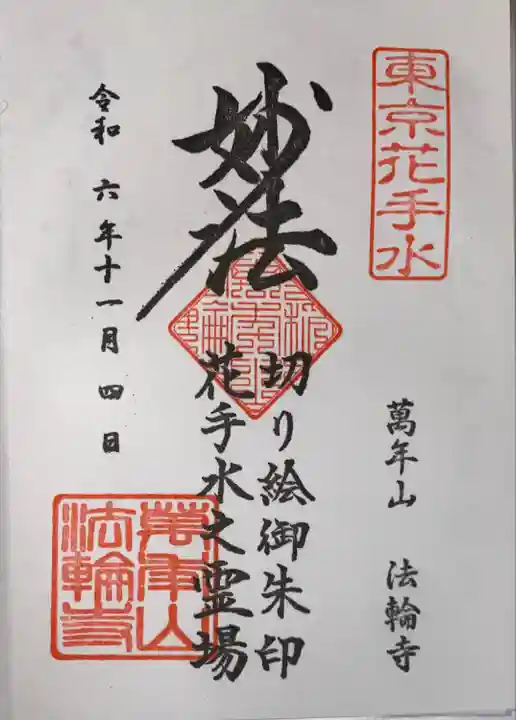 東京花手水
萬年山 法輪寺
妙法
切り絵御朱印
花手水之霊場
令和 六年十一月四日
萬年山
法輪寺